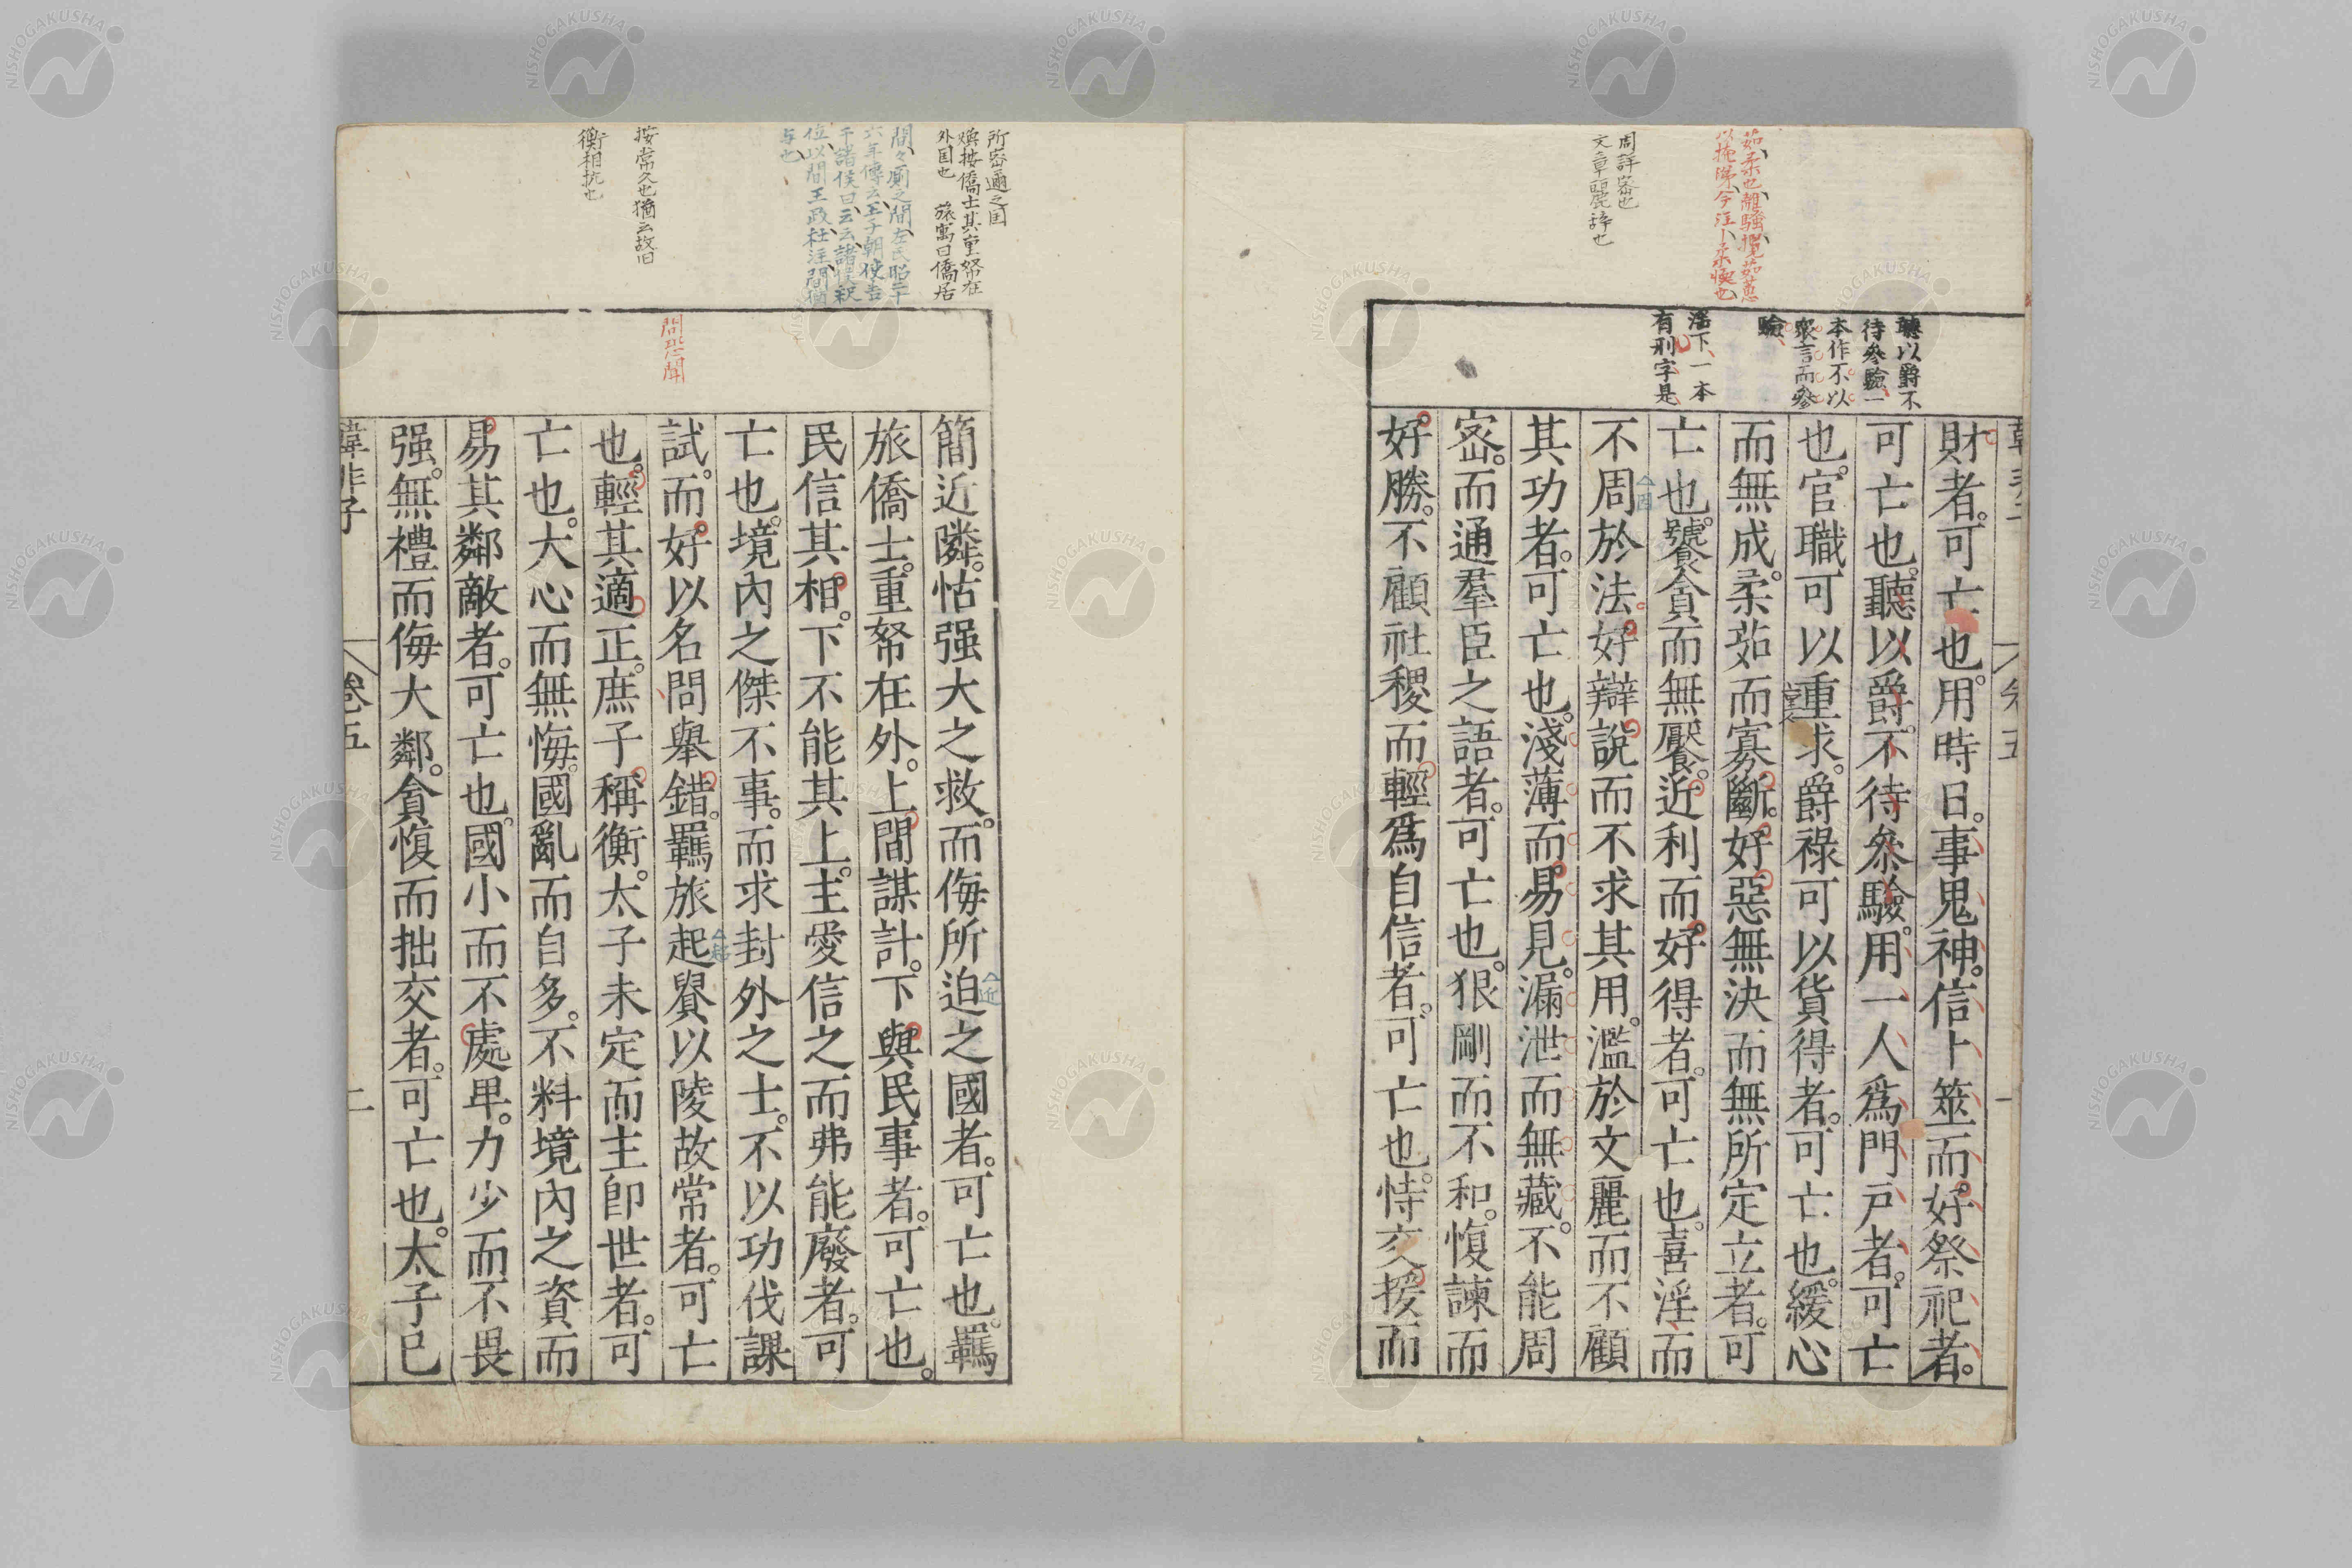 茹柔也離騷攬茹蕙
以掩涕今注茹柔愞也
周詳密也
文章麗辞也
聽以爵不
待參驗一
本作不以
衆言而參
驗
淫下一本
有刑字是
財者。可亡也。用時日。事鬼神。信卜筮而。好祭祀者。
可亡也。聽以爵。不待參驗。用一人爲門戶者。可亡
也。官職可以重求。爵祿可以貨得者。可亡也。緩心
而無成。柔茹而寡斷。好惡無決而無所定立者。可
亡也。饕貪而無厭。近利而好得者。可亡也。喜淫而
不周於法。好辯說而不求其用。濫於文麗而不顧
其功者。可亡也。淺薄而易見。漏泄而無藏。不能周
密。而通羣臣之語者。可亡也。狠剛而不和。愎諫而
好勝。不顧社稷而輕爲自信者。可亡也。恃交援而
所密邇之国
僑士其重帑在
外国也 旅寓曰僑居
間々厠之間左氏昭二十
六年傳云王子朝使告
于諸侯曰云云諸侯釈
位以間王政杜注間猶
与也
按常久也猶云故旧
衡相抗也
問恐聞
簡近隣。怙强大之救。而侮所迫之國者。可亡也。羈
旅僑士。重帑在外。上間謀計。下與民事者。可亡也。
民信其相。下不能其上。主愛信之而弗能廢者。可
亡也。境內之傑不事。而求封外之士。不以功伐課
試。而好以名問舉錯。羈旅起貴以陵故常者。可亡
也。輕其適正。庶子稱衡。太子未定而主卽世者。可
亡也。大心而無悔。國亂而自多。不料境內之資而
易其鄰敵者。可亡也。國小而不處卑。力少而不畏
强。無禮而侮大鄰。貪愎而拙交者。可亡也。太子已
韓非子 卷五 二
NISHOGAKUSHA